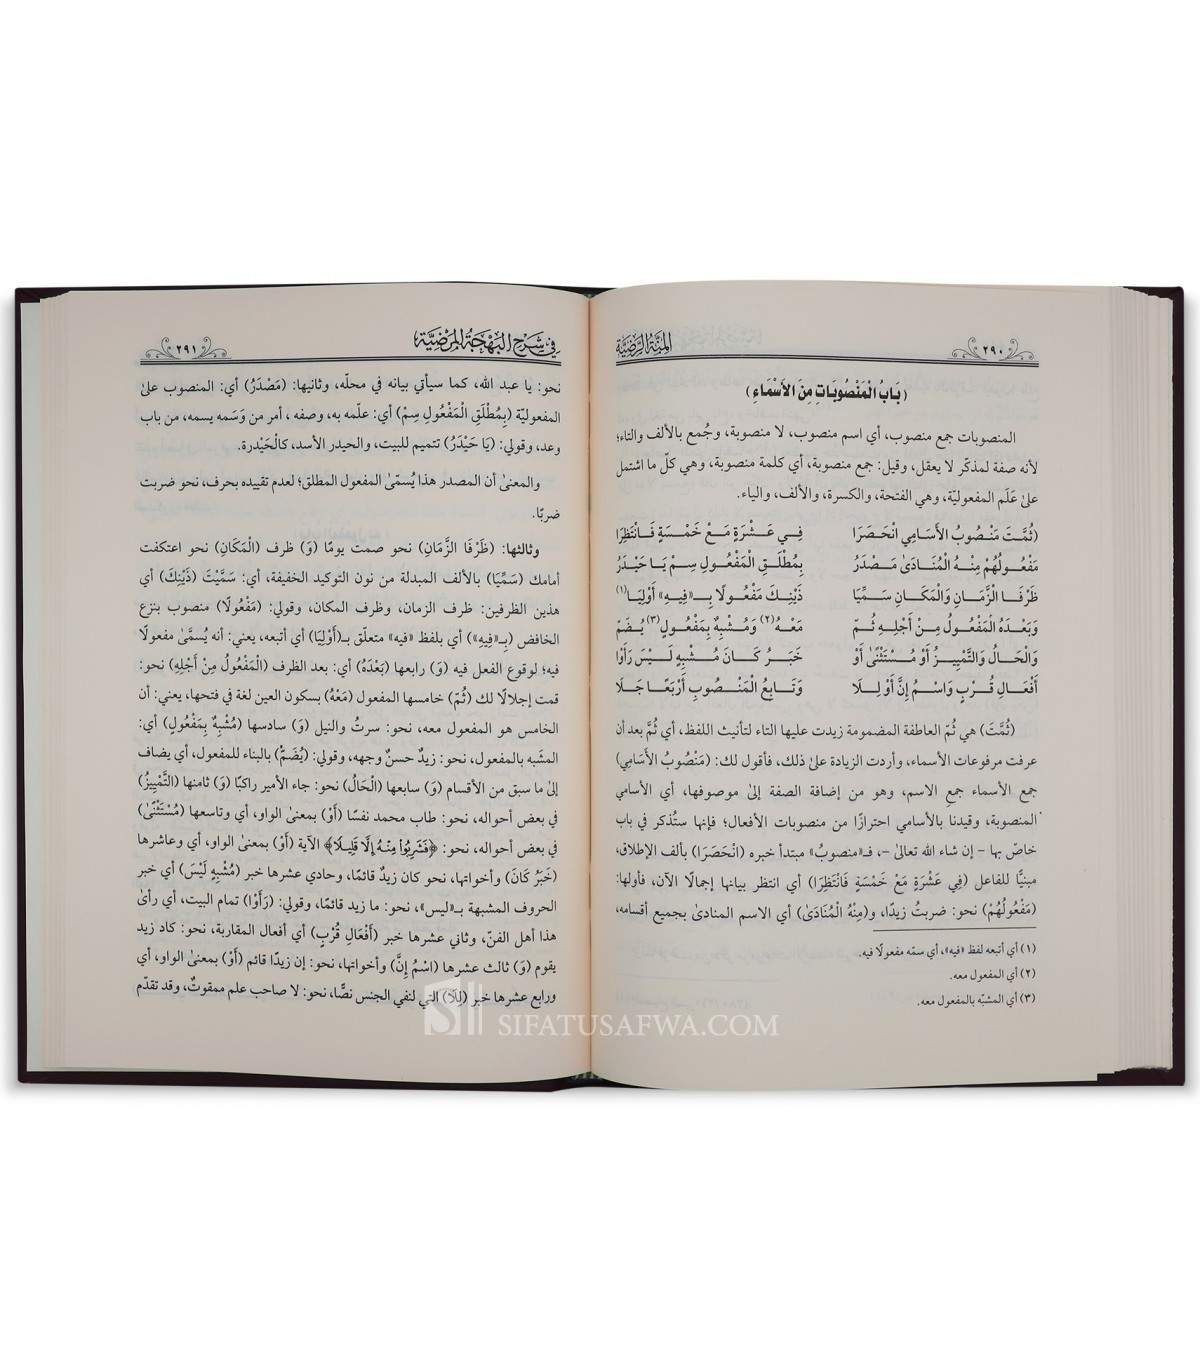 المنة الرضية
٢٩٠
(بَابُ الْمَنْصُوبَاتِ مِنَ الْأَسْمَاءِ)
المنصوبات جمع منصوب، أي اسم منصوب، لا منصوبة، وجُمع بالألف والتاء؛
لأنه صفة لمذكّر لا يعقل، وقيل: جمع منصوبة، أي كلمة منصوبة، وهي كلّ ما اشتمل
علىٰ عَلَم المفعوليّة، وهي الفتحة، والكسرة، والألف، والياء.
(ثُمَّتَ مَنْصُوبُ الأَسَامِي انْحَصَرَا فِي عَشْرَةٍ مَعْ خَمْسَةٍ فَانْتَظِرَا
مَفْعُولُهُمْ مِنْهُ الْمُنَادَىٰ مَصْدَرُ بِمُطْلَقِ الْمَفْعُولِ سِمْ يَا حَيْدَرُ
ظَرْفَا الزَّمَانِ وَالْمَكَانِ سَمِّيَا ذَيْنِكَ مَفْعُولًا بِـ«فِيهِ» أَوْلِيَا(١)
وَبَعْدَهُ الْمَفْعُولُ مِنْ أَجْلِهِ ثُمّْ مَعْهُ(٢) وَمُشْبِهٌ بِمَفْعُولٍ(٣) يُضَمّْ
وَالْحَالُ وَالتَّمْيِيزُ أَوْ مُسْتَثْنًىٰ أَوْ خَبَرُ كَانَ مُشْبِهِ لَيْسَ رَأَوْا
أَفْعَالِ قُرْبٍ وَاسْمُ إِنَّ أَوْ لِلَا وَتَابِعُ الْمَنْصُوبِ أَرْبَعًا جَلَا
(ثُمَّتَ) هي ثُمّ العاطفة المضمومة زيدت عليها التاء لتأنيث اللفظ، أي ثُمَّ بعد أن
عرفت مرفوعات الأسماء، وأردت الزيادة علىٰ ذلك، فأقول لك: (مَنْصُوبُ الأَسَامِي)
جمع الأسماء جمع الاسم، وهو من إضافة الصفة إلىٰ موصوفها، أي الأسامي
المنصوبة، وقيدنا بالأسامي احترازًا من منصوبات الأفعال؛ فإنها ستُذكر في باب
خاصّ بها - إن شاء الله تعالىٰ -، فـ«منصوبُ» مبتدأ خبره (انْحَصَرَا) بألف الإطلاق،
مبنيًّا للفاعل (فِي عَشْرَةٍ مَعْ خَمْسَةٍ فَانْتَظِرَا) أي انتظر بيانها إجمالًا الآن، فأولها:
(مَفْعُولُهُمْ) نحو: ضربتُ زيدًا، و(مِنْهُ الْمُنَادَىٰ) أي الاسم المنادىٰ بجميع أقسامه،
(١) أي أتبعه لفظ «فيه»، أي سمّه مفعولًا فيه.
(٢) أي المفعول معه.
(٣) أي المشبّه بالمفعول معه.
في شرح البهجة المرضية
٢٩١
نحو: يا عبد الله، كما سيأتي بيانه في محلّه، وثانيها: (مَصْدَرُ) أي: المنصوب علىٰ
المفعوليّة (بِمُطْلَقِ الْمَفْعُولِ سِمْ) أي: علّمه به، وصفه، أمر من وَسَمه يسمه، من باب
وعد، وقولي: (يَا حَيْدَرُ) تتميم للبيت، والحيدر الأسد، كالْحَيْدرة.
والمعنىٰ أن المصدر هذا يُسمّىٰ المفعول المطلق؛ لعدم تقييده بحرف، نحو ضربت
ضربًا.
وثالثها: (ظَرْفَا الزَّمَانِ) نحو صمت يومًا (وَ) ظرف (الْمَكَانِ) نحو اعتكفت
أمامك (سَمِّيَا) بالألف المبدلة من نون التوكيد الخفيفة، أي: سَمَّيْتَ (ذَيْنِكَ) أي
هذين الظرفين: ظرف الزمان، وظرف المكان، وقولي: (مَفْعُولًا) منصوب بنزع
الخافض (بِـ«فِيهِ») أي بلفظ «فيه» متعلّق بـ(أَوْلِيَا) أي أتبعه، يعني: أنه يُسمَّىٰ مفعولًا
فيه؛ لوقوع الفعل فيه (وَ) رابعها (بَعْدَهُ) أي: بعد الظرف (الْمَفْعُولُ مِنْ أَجْلِهِ) نحو:
قمت إجلالًا لك (ثُمّْ) خامسها المفعول (مَعْهُ) بسكون العين لغة في فتحها، يعني: أن
الخامس هو المفعول معه، نحو: سرتُ والنيل (وَ) سادسها (مُشْبِهٌ بِمَفْعُولٍ) أي:
المشَبه بالمفعول، نحو: زيدٌ حسنٌ وجهه، وقولي: (يُضَمّْ) بالبناء للمفعول، أي يضاف
إلىٰ ما سبق من الأقسام (وَ) سابعها (الْحَالُ) نحو: جاء الأمير راكبًا (وَ) ثامنها (التَّمْيِيزُ)
في بعض أحواله، نحو: طاب محمد نفسًا (أَوْ) بمعنىٰ الواو، أي وتاسعها (مُسْتَثْنًىٰ)
في بعض أحواله، نحو: ﴿فَشَرِبُوا مِنْهُ إِلَّا قَلِيلًا﴾ الآية (أَوْ) بمعنىٰ الواو، أي وعاشرها
(خَبَرُ كَانَ) وأخواتها، نحو كان زيدٌ قائمًا، وحادي عشرها خبر (مُشْبِهِ لَيْسَ) أي خبر
الحروف المشبهة بـ«ليس»، نحو: ما زيد قائمًا، وقولي: (رَأَوْا) تمام البيت، أي رأىٰ
هذا أهل الفنّ، وثاني عشرها خبر (أَفْعَالِ قُرْبٍ) أي أفعال المقاربة، نحو: كاد زيد
يقوم (وَ) ثالث عشرها (اسْمُ إِنَّ) وأخواتها، نحو: إن زيدًا قائم (أَوْ) بمعنىٰ الواو، أي
ورابع عشرها خبر (لِلَا) التي لنفي الجنس نصًّا، نحو: لا صاحب علم ممقوتٌ، وقد تقدّم
SIFATUSAFWA.COM